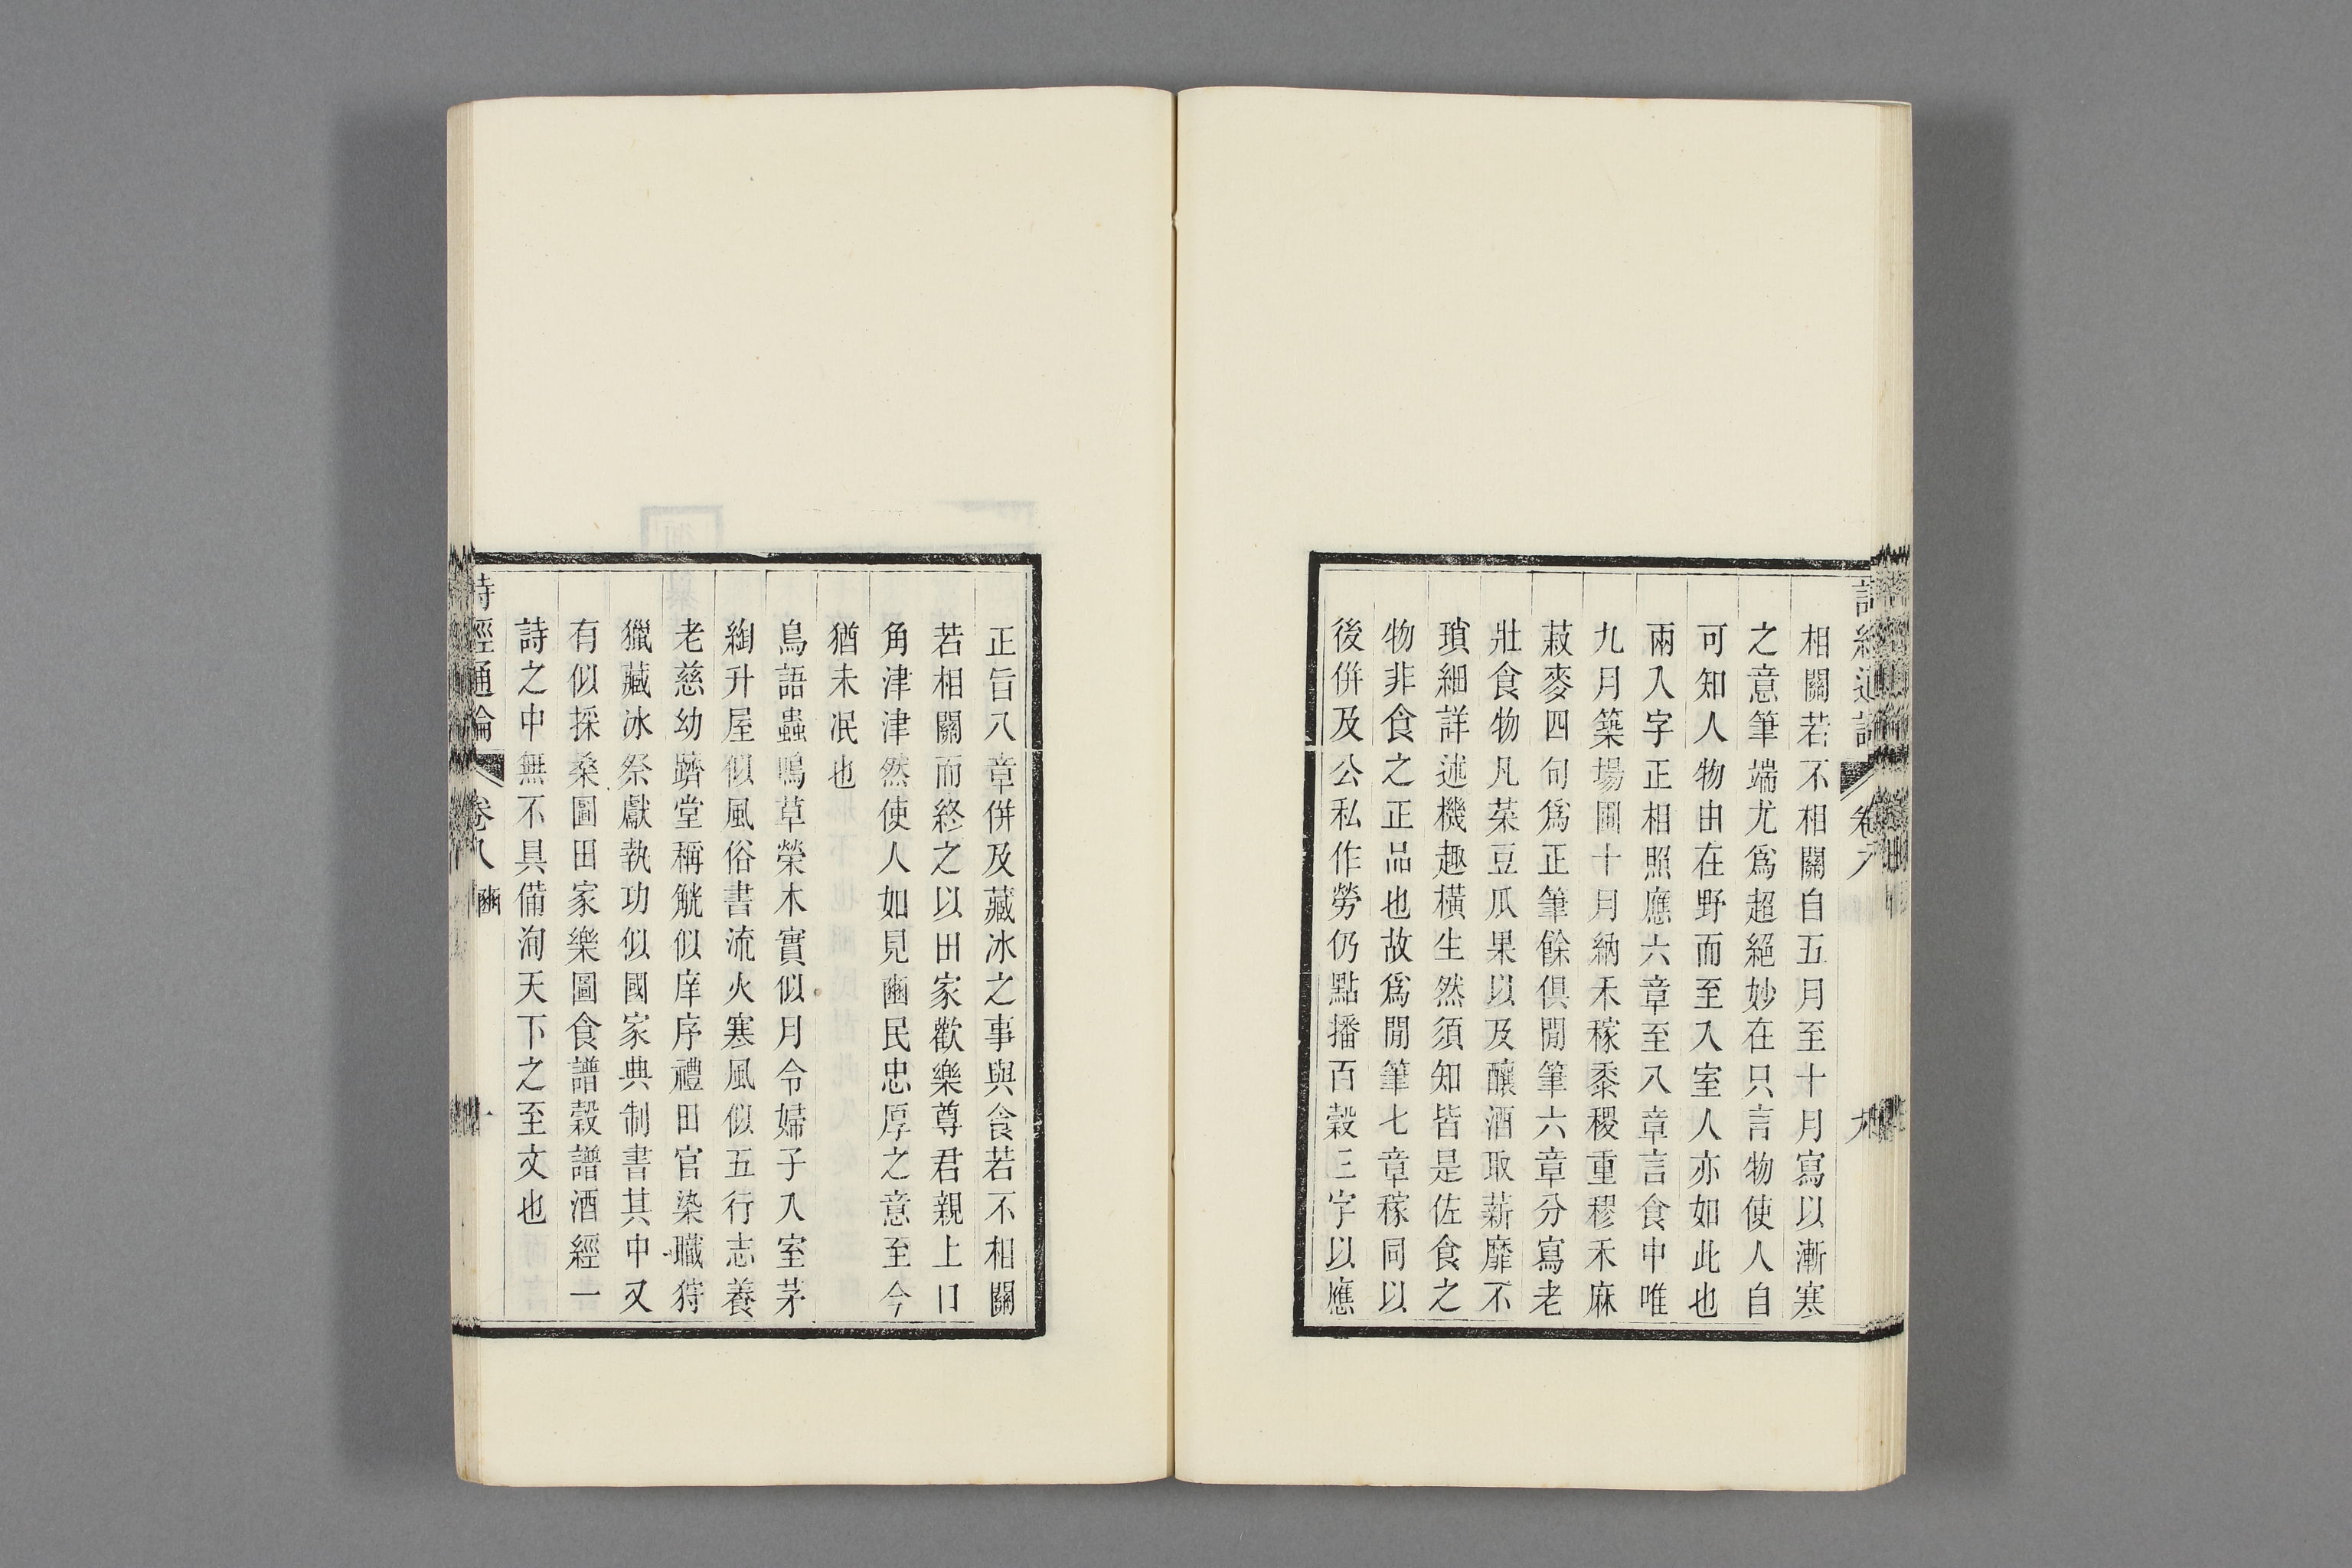 相關若不相關自五月至十月寫以漸寒
之意筆端尤爲超絕妙在只言物使人自
可知人物由在野而至入室人亦如此也
兩入字正相照應六章至八章言食中唯
九月築場圃十月納禾稼黍稷重穋禾麻
菽麥四句爲正筆餘俱閒筆六章分寫老
壯食物凡菜豆瓜果以及釀酒取薪靡不
瑣細詳述機趣橫生然須知皆是佐食之
物非食之正品也故爲閒筆七章稼同以
後併及公私作勞仍點播百穀三字以應
正旨八章併及藏冰之事與食若不相關
若相關而終之以田家歡樂尊君親上口
角津津然使人如見豳民忠厚之意至今
猶未泯也
鳥語蟲鳴草榮木實似月令婦子入室茅
綯升屋似風俗書流火寒風似五行志養
老慈幼躋堂稱觥似庠序禮田官染職狩
獵藏冰祭獻執功似國家典制書其中又
有似採桑圖田家樂圖食譜穀譜酒經一
詩之中無不具備洵天下之至文也
詩經通論 卷八 豳